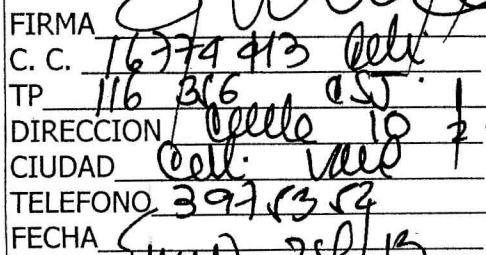 FIRMA
C. C. 16774413 Cali
TP 116 356 CSJ
DIRECCION Calle 10
CIUDAD Cali. Valle
TELEFONO 3975352
FECHA